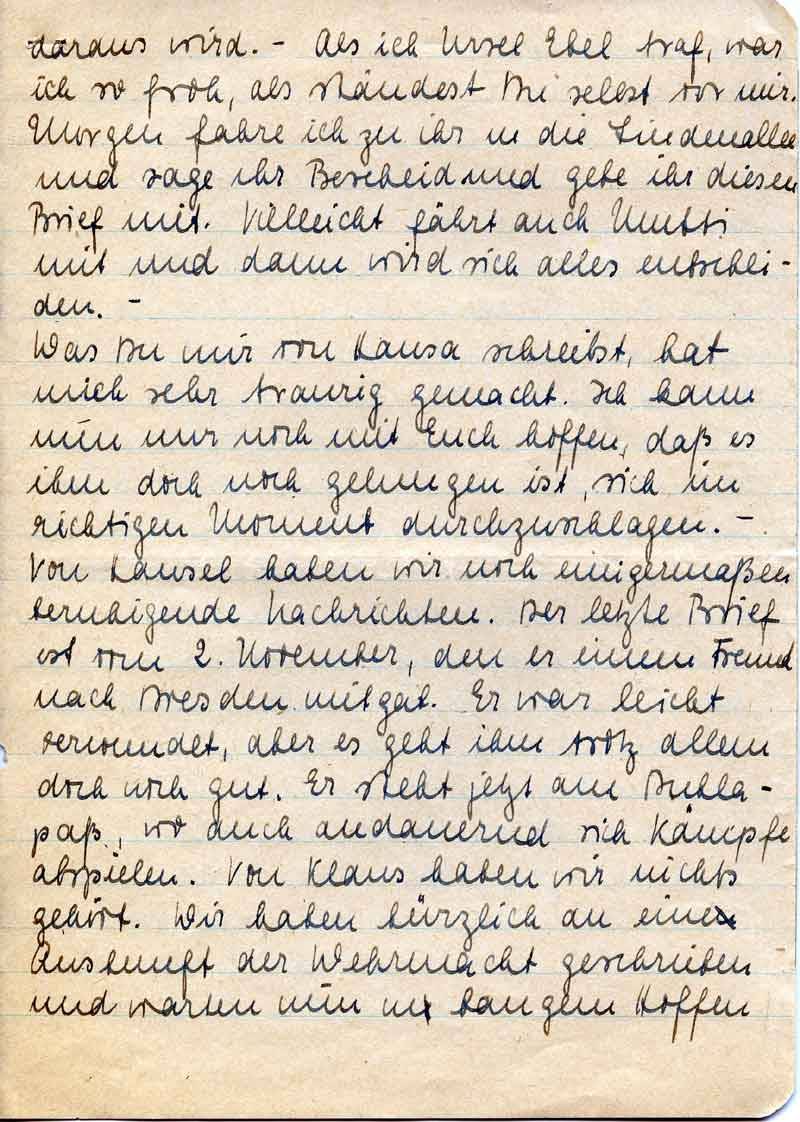 daraus wird. – Als ich Ursel Ebel traf, war
ich so froh, als ständest Du selbst vor mir.
Morgen fahre ich zu ihr in die Lindenallee
und sage ihr Bescheid und gebe ihr diesen
Brief mit. Villeicht fährt auch Mutti
mit und dann wird sich alles entschei-
den. –
Was Du mir von Hansa schreibst, hat
mich sehr traurig gemacht. Ich kann
nun nur noch mit Euch hoffen, daß es
ihm doch noch gelungen ist, sich im
richtigen Moment durchzuschlagen. –
Von Hansel haben wir noch einigermaßen
beruhigende Nachrichten. Der letzte Brief
ist vom 2. November, den er einem Freund
nach Dresden mitgab. Er war leicht
verwundet, aber es geht ihm trotz allem
doch noch gut. Er steht jetzt am Dukla-
paß, wo auch andauernd sich Kämpfe
abspielen. Von Klaus haben wir nichts
gehört. Wir haben kürzlich an eine
Auskunft der Wehrmacht geschrieben
und warten nun in bangem Hoffen